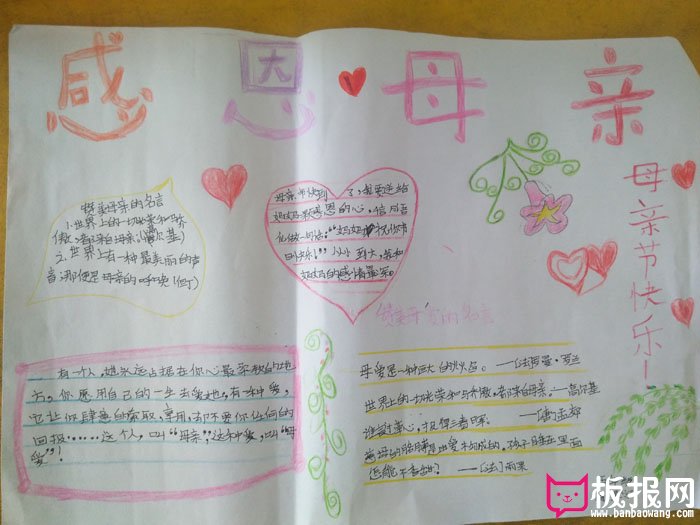 感恩母亲
母亲节快乐!
赞亲母亲的名言
1.世界上的一切光荣和骄
傲,都来自母亲(高尔基)
2.世界上有一种最美丽的声
音,那便是母亲的呼唤!(但丁)
母亲节快到了,我要送给
妈妈一颗感恩的心,信用语
化做一句话:“妈妈,祝你节
日快乐!”从小到大,我和
妈妈的感情最深。
赞美母爱的名言
有一个人,她永远占据在你心最柔软的地
方,你愿用自己的一生去爱她,有一种爱,
它让你肆意的索取,享用,却不要你任何的
回报……这个人,叫“母亲”,这种爱,叫“母
爱”!
母爱是一种巨大的火焰。——[法]罗曼·罗兰
世界上的一切光荣和骄傲,都来自母亲。——高尔基
谁言寸草心,报得三春晖。——[唐]孟郊
慈母的胳膊是由爱构成的,孩子睡在里面
怎能不香甜?——[法]雨果
板报网
www.banbaowang.com